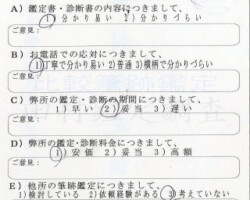 A) 鑑定書・診断書の内容につきまして、
1) 分かり易い 2) 分かりづらい
ご意見:
B) お電話での応対につきまして、
1) 丁寧で分かり易い 2) 普通 3) 横柄で分かりづらい
ご意見:
C) 弊所の鑑定・診断の期間につきまして、
1) 早い 2) 妥当 3) 遅い
D) 弊所の鑑定・診断料金につきまして、
1) 安価 2) 妥当 3) 高額
ご意見:
E) 他所の筆跡鑑定につきまして、
1) 検討している 2) 依頼経験がある 3) 考えていない